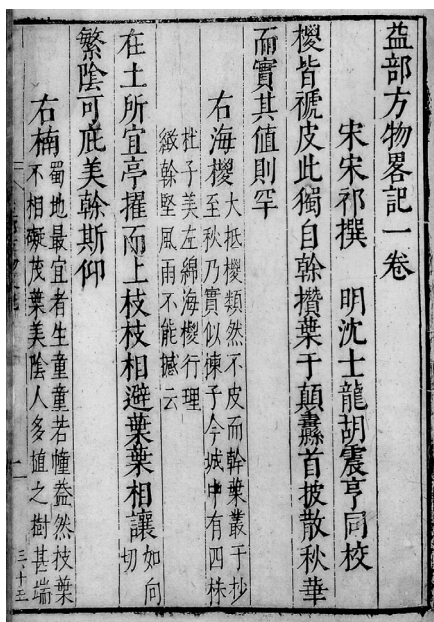 益部方物畧記一卷
宋宋祁撰　明沈士龍胡震亨同校
椶皆褫皮此獨自榦攢葉于顛纛首披散秋華
而實其值則罕
右海椶大抵椶類然不皮而榦葉叢于杪
至秋乃實似楝子今城中有四株
杜子美左綿海椶行理
緻榦堅風雨不能撼云
在土所宜亭擢而上枝枝相避葉葉相讓如向
切
繁陰可庇美榦斯仰
右楠蜀地最宜者生童童若幢葢然枝葉
不相礙茂葉美陰人多植之樹甚端